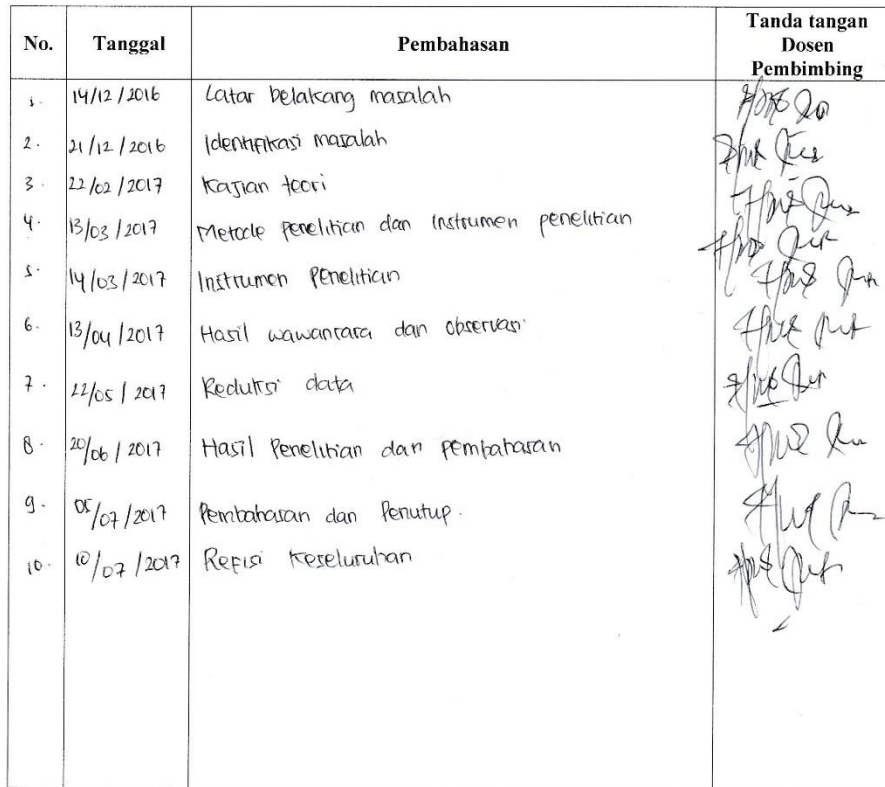 No. Tanggal Pembahasan Tanda tangan
Dosen
Pembimbing
1. 14/12/2016 Latar belakang masalah
2. 21/12/2016 Identifikasi masalah
3. 22/02/2017 Kajian teori
4. 13/03/2017 Metode penelitian dan instrumen penelitian
5. 14/03/2017 Instrumen Penelitian
6. 13/04/2017 Hasil wawancara dan observasi
7. 22/05/2017 Reduksi data
8. 20/06/2017 Hasil Penelitian dan pembahasan
9. 05/07/2017 Pembahasan dan Penutup.
10. 10/07/2017 Refisi Keseluruhan